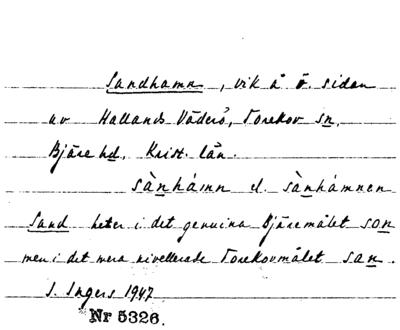 Sandhamn, vik å ö. sidan
av Hallands Väderö, Torekov sn,
Bjäre hd, Krist. län.
sànhámn el. sànhámnen
Sand heter i det genuina Bjäremålet son
men i det mera nivellerade Torekovmålet san.
I. Ingers 1947
Nr 5326.